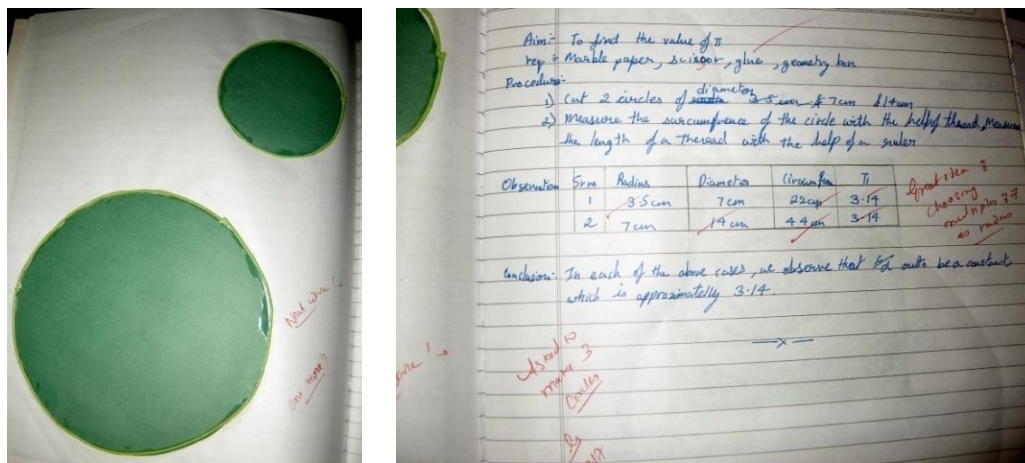 Neat work!
One more?
Aim:- To find the value of π
req:- Marble paper, scissor, glue, geometry box
Procedure:-
1) Cut 2 circles of diameter 7cm & 14cm
2) Measure the surcumfrence of the circle with the help of thread, Measure
the length of a thread with the help of a ruler
Observation
Sr no Radius Diameter Circumfrn π
1 3.5 cm 7 cm 22 cm 3.14
2 7 cm 14 cm 44 cm 3.14
Great idea of
choosing
multiples 3.7
as radius
Conclusion:- In each of the above cases, we observe that c/d outs be a constant
which is approximatelly 3.14.
—x—
Asked to
make 3
Circles